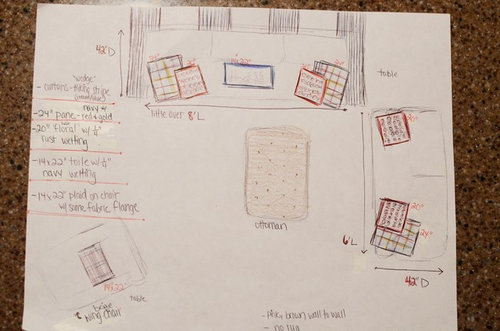 42"D
24"
20"
14x22
20"
24"
table
little over 8'L
"wedge"
- curtains - ticking stripe
navy +
- 24" pane - red + gold
- 20" floral w/ ¼"
rust welting
- 14x22" toile w/ ¼"
navy welting
- 14x22" plaid on chair
w/ same fabric flange
ottoman
20"
20"
24"
6'L
42" D
14x22"
beige
wing chair
table
- pinky brown wall to wall
- no rug